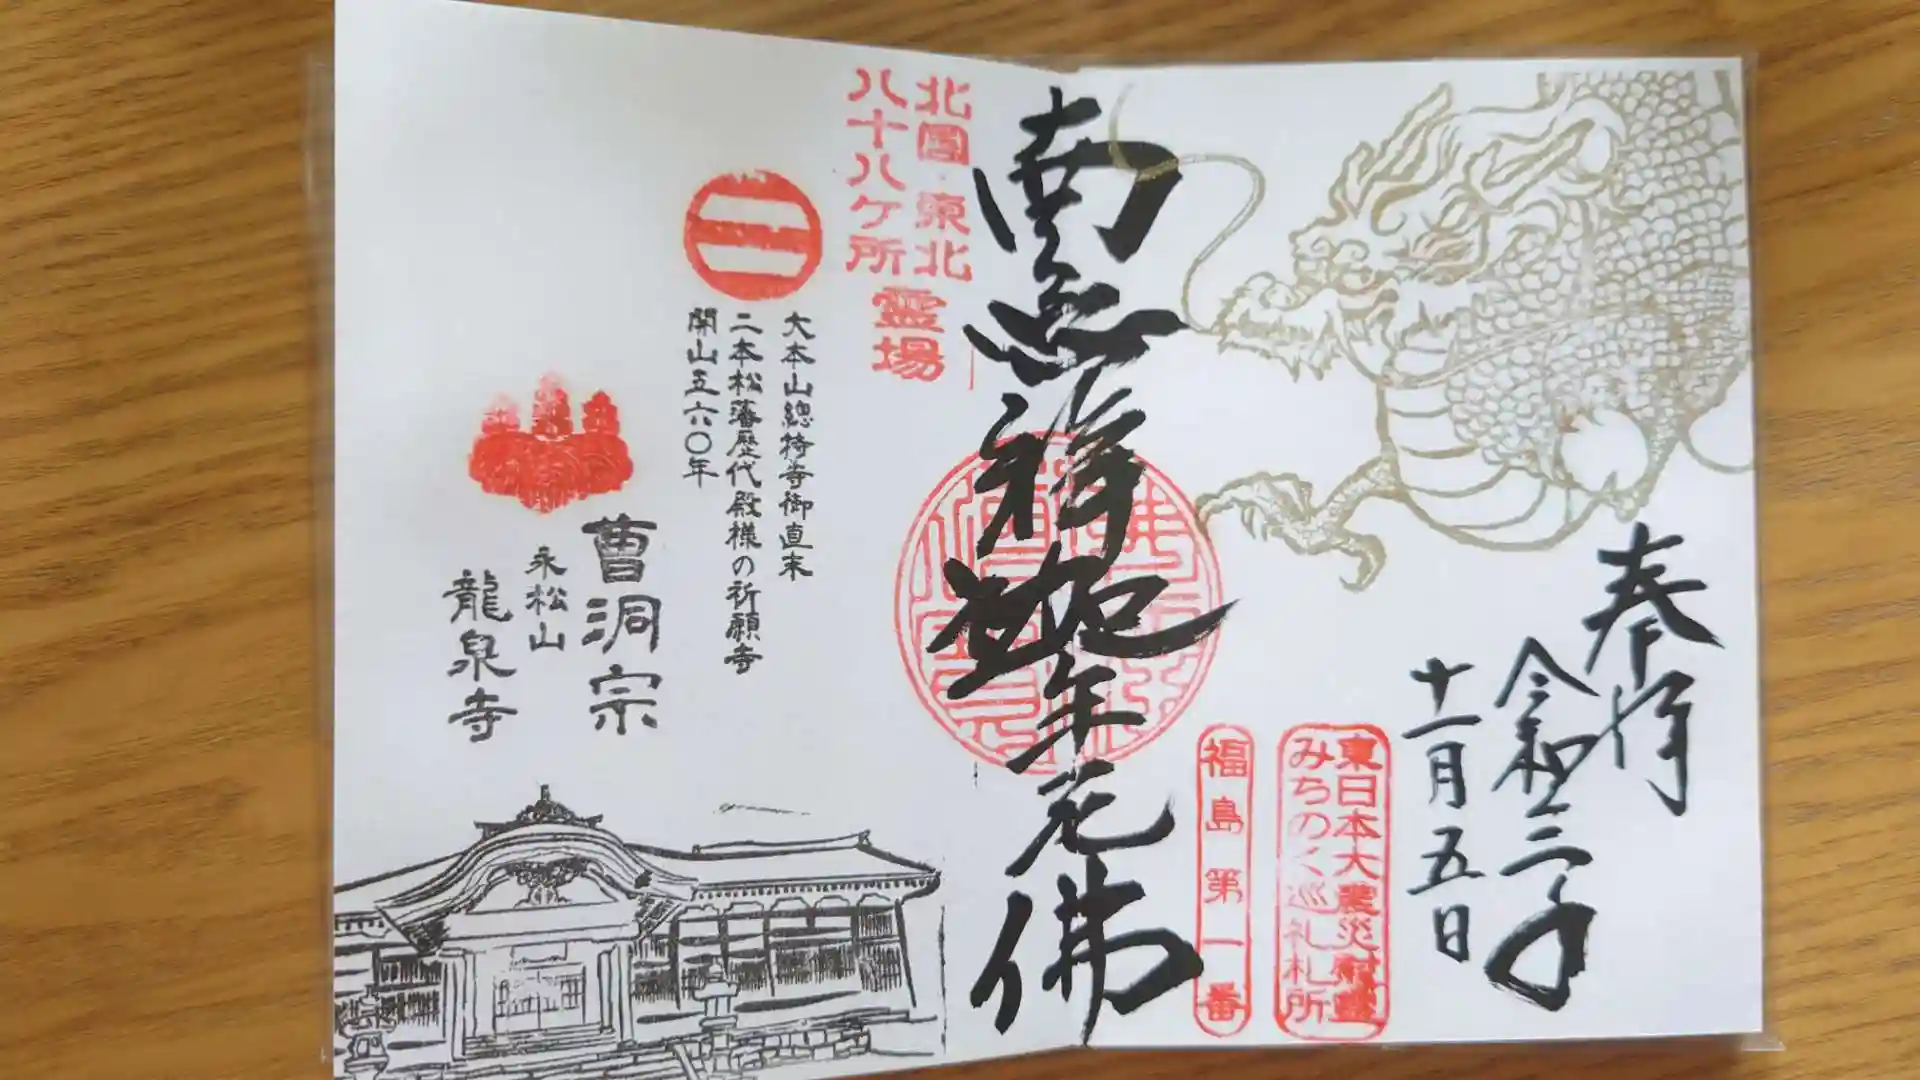 奉拝
令和二年
十一月五日
東日本大震災慰霊
みちのく巡礼札所
福島第一番
南無釋迦牟尼佛
北國・東北
八十八ケ所
霊場
大本山總持寺御直末
二本松藩歴代殿様の祈願寺
開山五六〇年
曹洞宗
永松山
龍泉寺